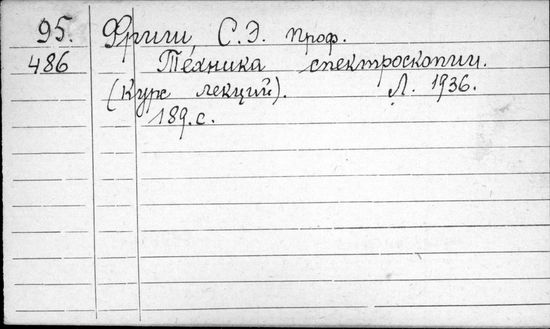 95. Фриш, С.Э. Проф.
486 Техника спектроскопии.
(Курс лекций). Л. 1936.
189.с.